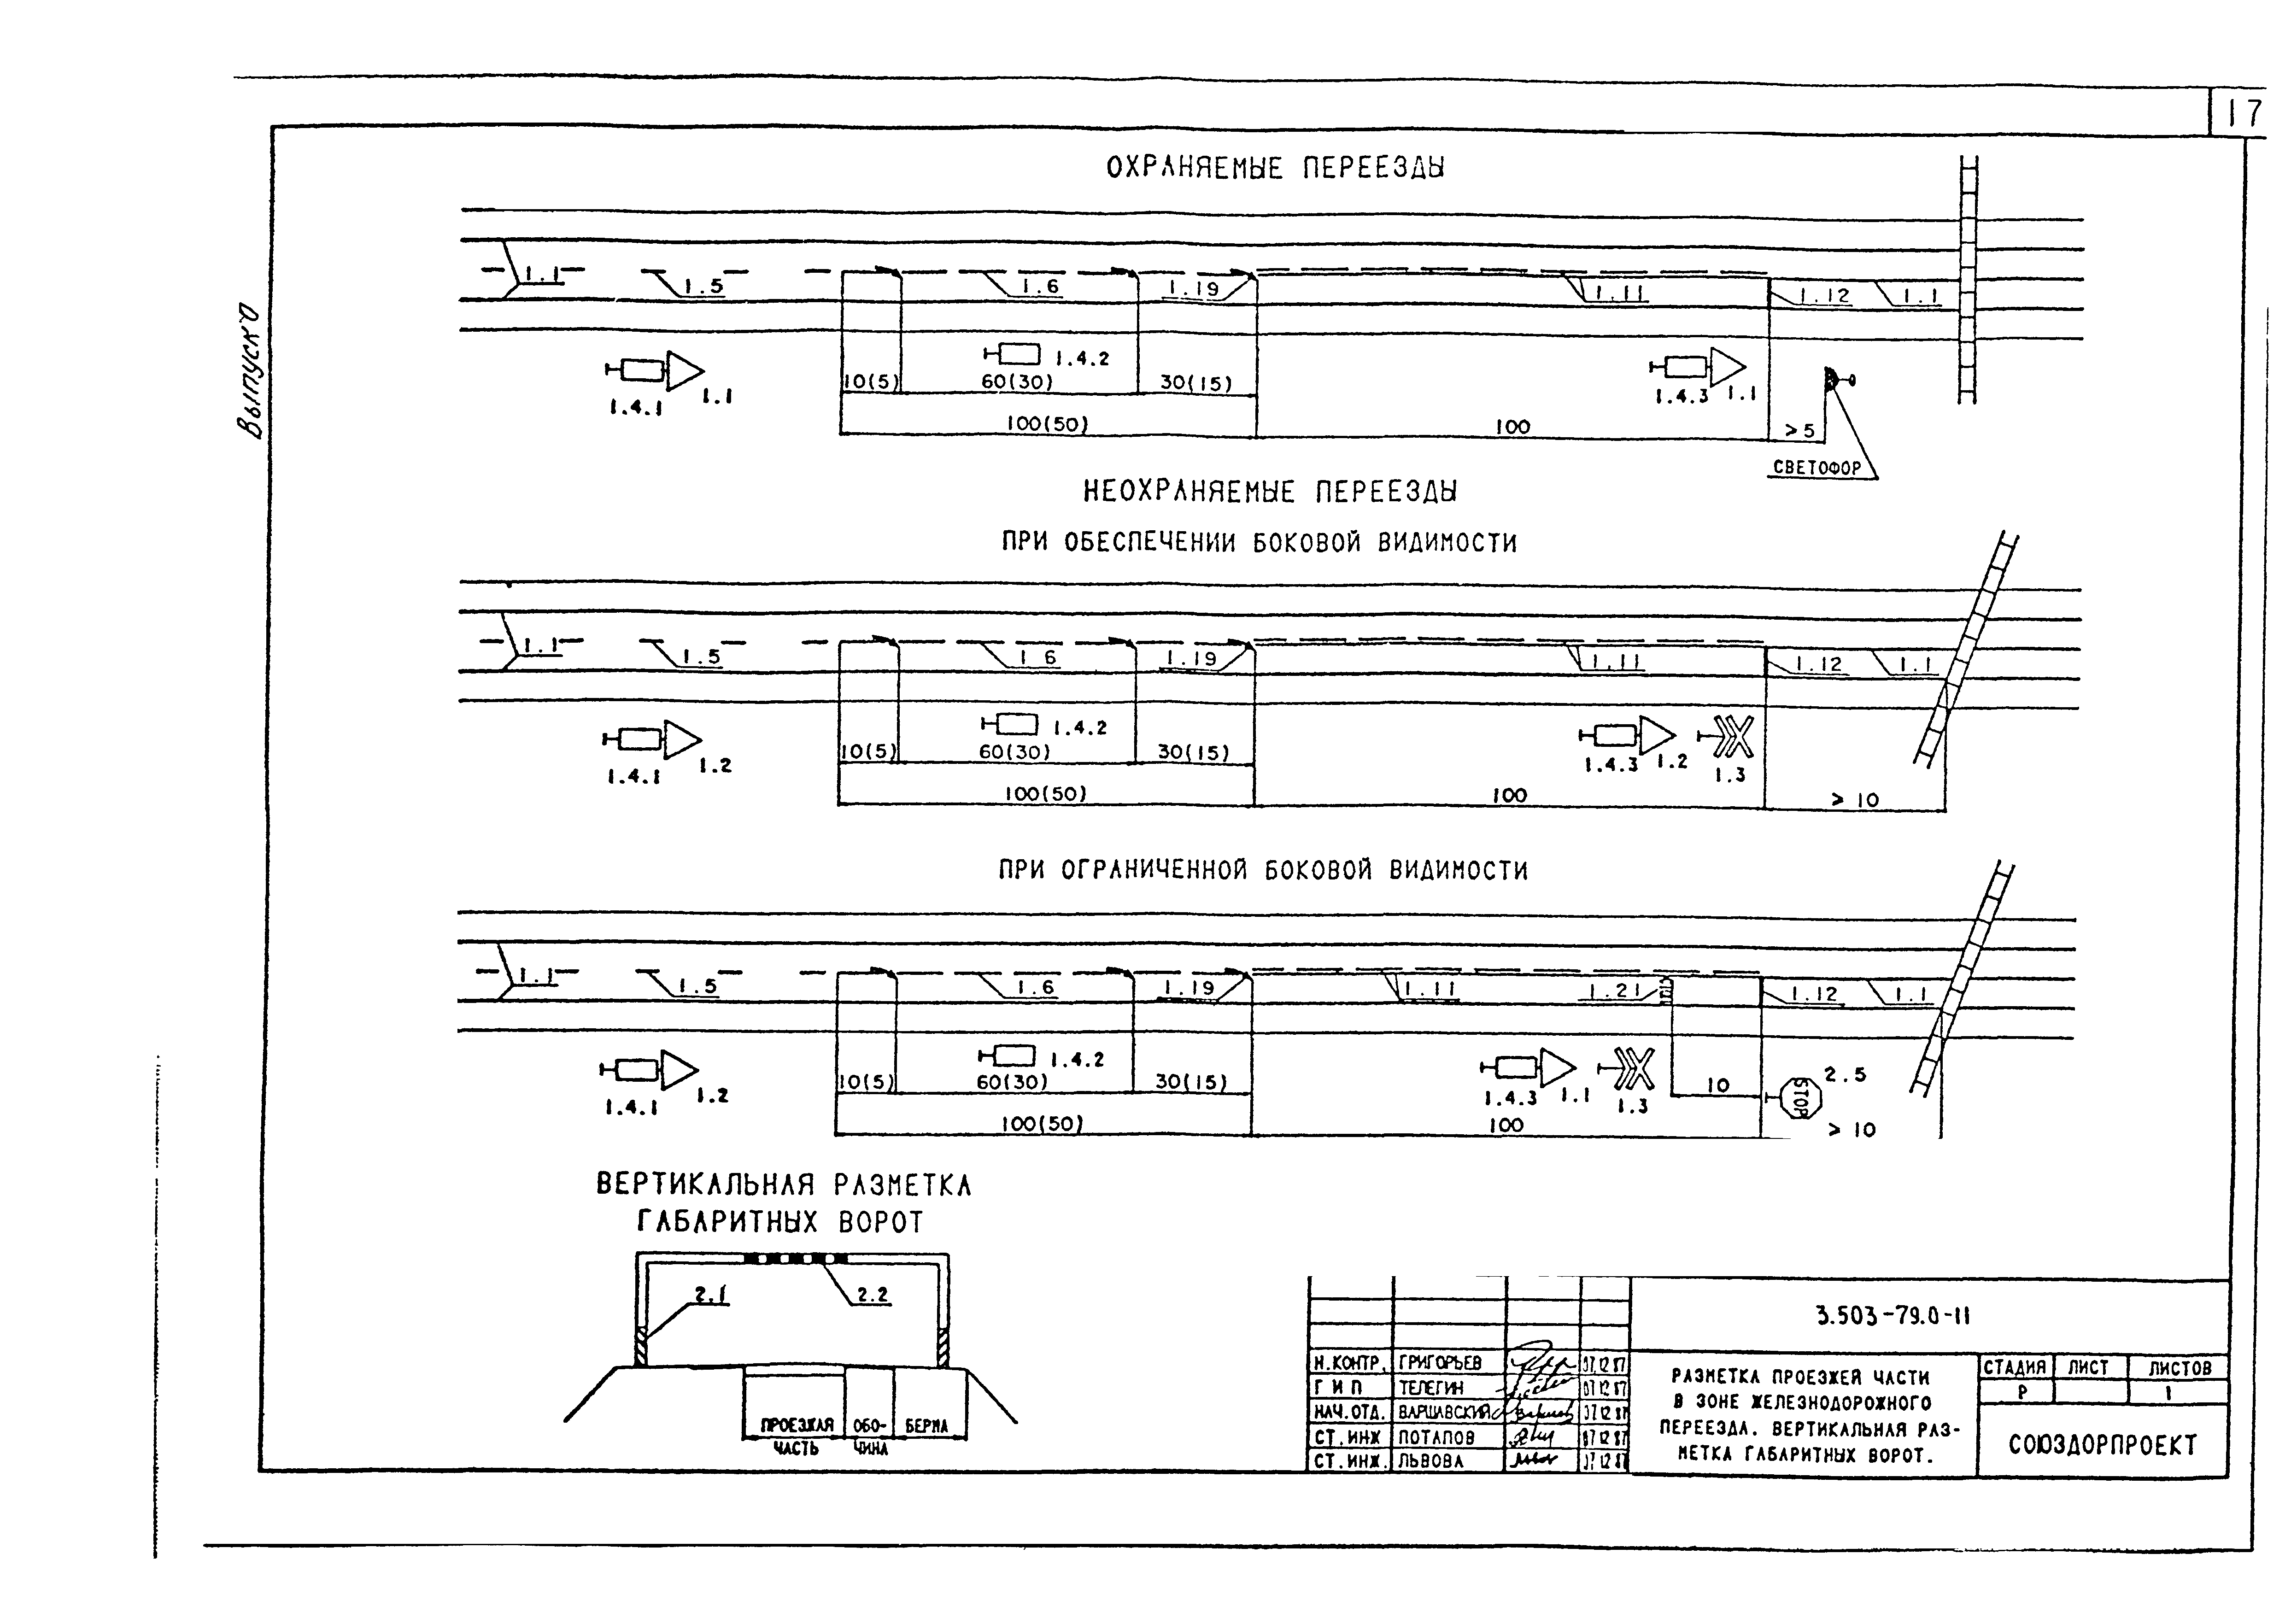 17
Выпуск 0
ОХРАНЯЕМЫЕ ПЕРЕЕЗДЫ
1.1
1.5
1.6
1.19
1.11
1.12
1.1
1.4.1
1.1
1.4.2
1.4.3
1.1
10(5)
60(30)
30(15)
100(50)
100
>5
СВЕТОФОР
НЕОХРАНЯЕМЫЕ ПЕРЕЕЗДЫ
ПРИ ОБЕСПЕЧЕНИИ БОКОВОЙ ВИДИМОСТИ
1.1
1.5
1 6
1.19
1.11
1.12
1.1
1.4.1
1.2
1.4.2
1.4.3
1.2
1.3
10(5)
60(30)
30(15)
100(50)
100
> 10
ПРИ ОГРАНИЧЕННОЙ БОКОВОЙ ВИДИМОСТИ
1.1
1.5
1.6
1.19
1.11
1.21
1.12
1.1
1.4.1
1.2
1.4.2
1.4.3
1.1
1.3
10
STOP
2.5
10(5)
60(30)
30(15)
100(50)
100
> 10
ВЕРТИКАЛЬНАЯ РАЗМЕТКА
ГАБАРИТНЫХ ВОРОТ
2.1
2.2
ПРОЕЗЖАЯ
ЧАСТЬ
ОБО-
ЧИНА
БЕРМА
3.503-79.0-11
Н.КОНТР. ГРИГОРЬЕВ 07.12.87
ГИП ТЕЛЕГИН 07.12.87
НАЧ.ОТД. ВАРШАВСКИЙ 07.12.87
СТ.ИНЖ ПОТАПОВ 07.12.87
СТ.ИНЖ. ЛЬВОВА 07.12.87
РАЗМЕТКА ПРОЕЗЖЕЙ ЧАСТИ
В ЗОНЕ ЖЕЛЕЗНОДОРОЖНОГО
ПЕРЕЕЗДА. ВЕРТИКАЛЬНАЯ РАЗ-
МЕТКА ГАБАРИТНЫХ ВОРОТ.
СТАДИЯ ЛИСТ ЛИСТОВ
Р 1
СОЮЗДОРПРОЕКТ